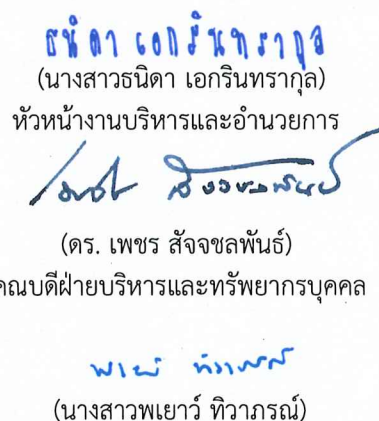 ธนิดา เอกรินทรากุล
(นางสาวธนิดา เอกรินทรากุล)
หัวหน้างานบริหารและอำนวยการ
(ดร. เพชร สัจจชลพันธ์)
คณบดีฝ่ายบริหารและทรัพยากรบุคคล
พเยาว์ ทิวาภรณ์
(นางสาวพเยาว์ ทิวาภรณ์)